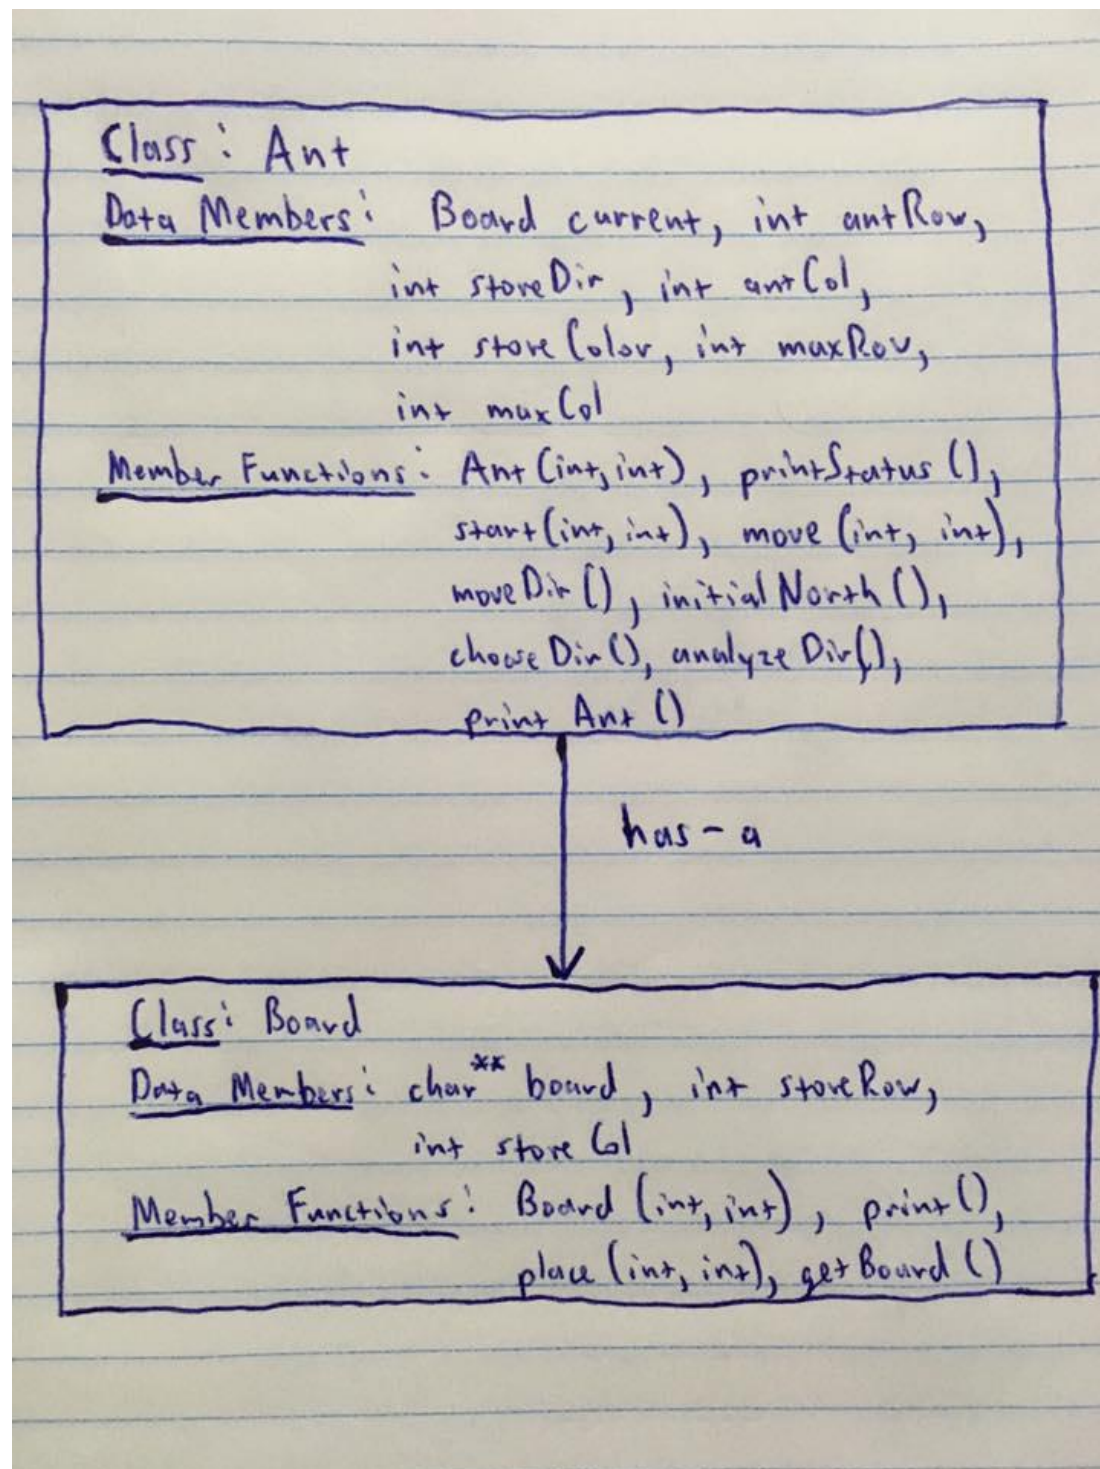 Class: Ant
Data Members: Board current, int antRow,
int storeDir, int antCol,
int storeColor, int maxRow,
int maxCol
Member Functions: Ant (int, int), printStatus (),
start (int, int), move (int, int),
moveDir (), initialNorth (),
chooseDir (), analyzeDir (),
print Ant ()
has-a
Class: Board
Data Members: char** board, int storeRow,
int storeCol
Member Functions: Board (int, int), print (),
place (int, int), getBoard ()